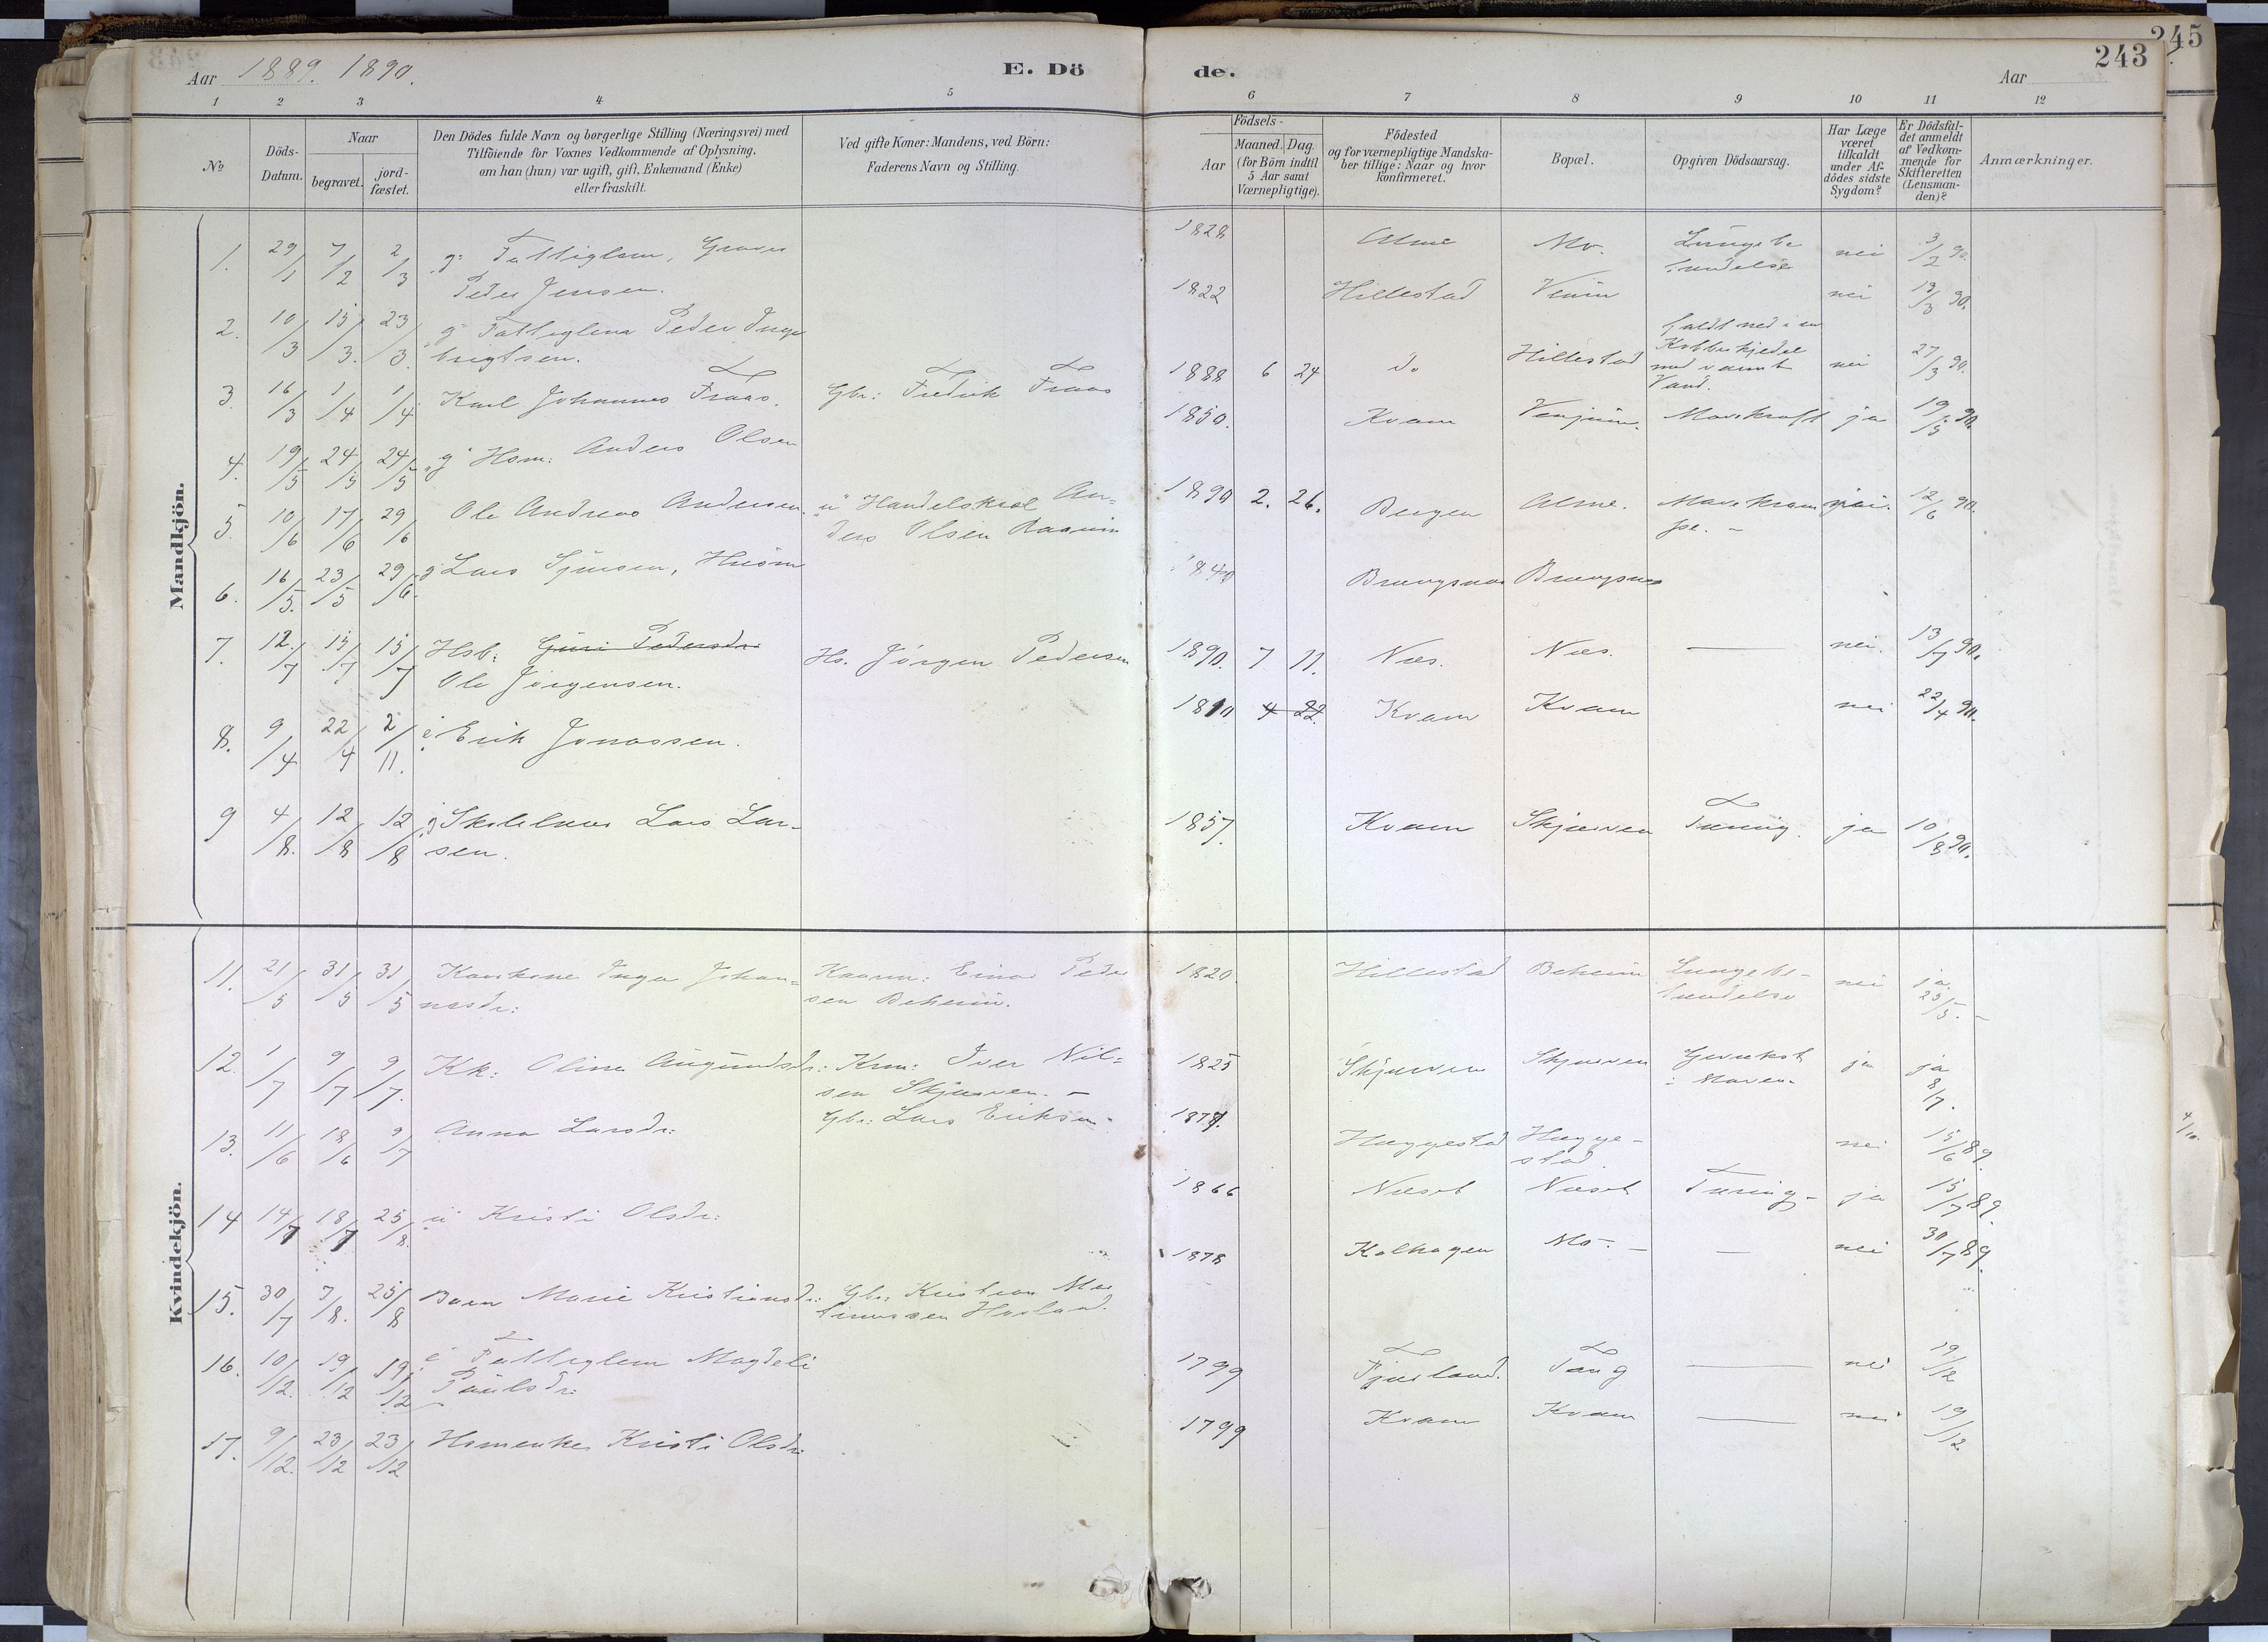 245
243
Aar 1889. 1890.
E. Dö
de.
Aar
1 2 3 4 5 6 7 8 9 10 11 12
No
Döds-
Datum.
Naar
begravet.
jord-
fæstet.
Den Dödes fulde Navn og borgerlige Stilling (Næringsvei) med
Tilföiende for Voxnes Vedkommende af Oplysning,
om han (hun) var ugift, gift, Enkemand (Enke)
eller fraskilt.
Ved gifte Koner: Mandens, ved Börn:
Faderens Navn og Stilling.
Födsels-
Aar
Maaned. Dag.
(for Börn indtil
5 Aar samt
Værnepligtige).
Födested
og for værnepligtige Mandska-
ber tillige: Naar og hvor
konfirmeret.
Bopæl.
Opgiven Dödsaarsag.
Har Læge
været
tilkaldt
under Af-
dödes sidste
Sygdom?
Er Dödsfal-
det anmeldt
af Vedkom-
mende for
Skifteretten
(Lensman-
den)?
Anmærkninger.
Mandkjön.
1. 29/1 7/2 2/3 g: Fattiglem, Graver
Peder Jensen.
1828 Alme Mo. Lungebe
tændelse nei 3/2 90.
2. 10/3 15/3. 23/3. g: Fattiglem Peder Inge
brigtsen.
1822 Hillestad nei 13/3 90.
3. 16/3 1/4 1/4 Karl Johannes Fraas. Gbr: Fredrik Fraas
1888 6 24 do Hillestad faldt ned i en
Kobberkjedel
med varmt
Vand. nei 27/3 90.
4. 19/5 24/5 24/5 "g" Hsm: Anders Olsen
1850. Kvam Mavekræft ja 19/5 90.
5. 10/6 17/6 29/6 Ole Andreas Andersen. "u" Handelskarl An=
ders Olsen
1890 2. 26. Bergen Alme. Mavekram
pe. - nei. 12/6 90.
6. 16/5. 23/5 29/6. g Lars Sjursen, Husm
1840
7. 12./7 15/7 15/7 Hsb: Guri Pedersdr
Ole Jørgensen. Hs. Jørgen Pedersen
1890. 7 11. Næs. Næs. — nei. 13/7 90.
8. 9/4 22/4 2/11. e Erik Jonassen.
1810 4 22 Kvam Kvam nei 22/4 90.
9 4/8. 12/8 12/8 g Skolelærer Lars Lar-
sen.
1857. Kvam Skjærven Tæring. ja 10/8 90.
Kvindekjön.
11. 21/5 31/5 31/5 Kaarkone Inga Johan=
nesdr: Kaarm: Einar Peder
sen Beheim.
1820. Hillestad Beheim Lungebe-
tændelse nei ja.
23/5. -
12. 1/7 9/7 9/7. Kk: Oline Augundsdr: Krm: Iver Nil=
sen Skjærven. -
1825 Skjærven Skjærven Gevækst
i Maven. ja ja
8/7.
13. 11/6 18/6 9/7 Anna Larsdr: Gbr: Lars Eriksen
Hæggestad Hægge-
stad nei 15/6 89.
14 14/7 18/7 25/8. u Kristi Olsdr:
1866 Næset Næset Tæring - ja 15/7 89.
15. 30/7 7/8. 25/8 Barn Marie Kristiansdr: Gbr: Kristian Mar
tinussen
1878 Kalhagen Mo. - — nei 30/7 89.
16. 10/12. 19/12 19/12 e Fattiglem Magdeli
Paulsdr:
1799 Fjærland. Tang — nei 19/12
17. 9/12. 23/12 23/12 Hsmenke Kristi Olsdr:
1799 Kvam Kvam — nei 19/12
4/10.